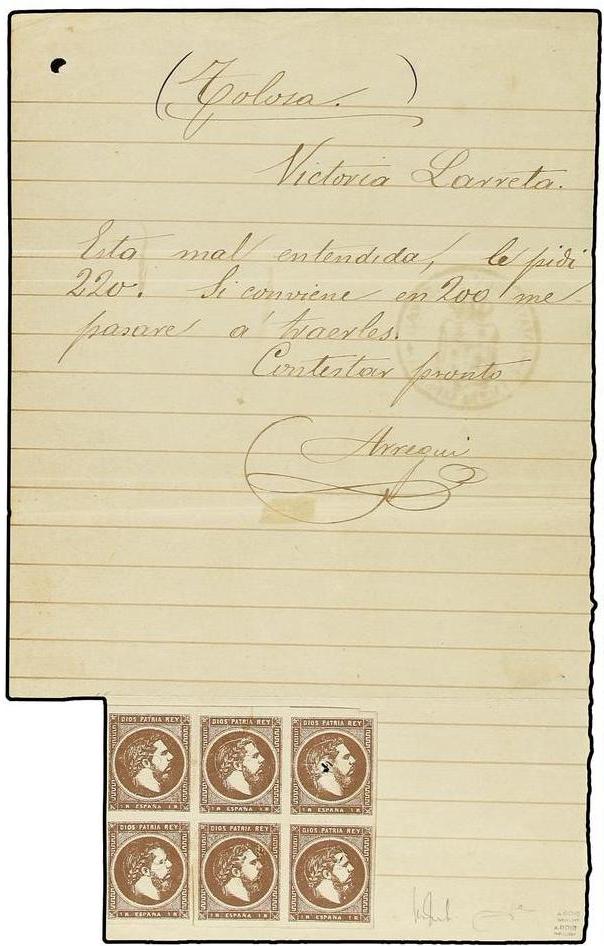 (Tolosa.)
Victoria Larreta.
Esta mal entendida, le pidi
220. Si conviene en 200 me
pasare á traerles.
Contestar pronto
Arregui
DIOS PATRIA REY DIOS PATRIA REY DIOS PATRIA REY
1 R ESPAÑA 1 R 1 R ESPAÑA 1 R 1 R ESPAÑA 1 R
DIOS PATRIA REY DIOS PATRIA REY DIOS PATRIA REY
1 R ESPAÑA 1 R 1 R ESPAÑA 1 R 1 R ESPAÑA 1 R